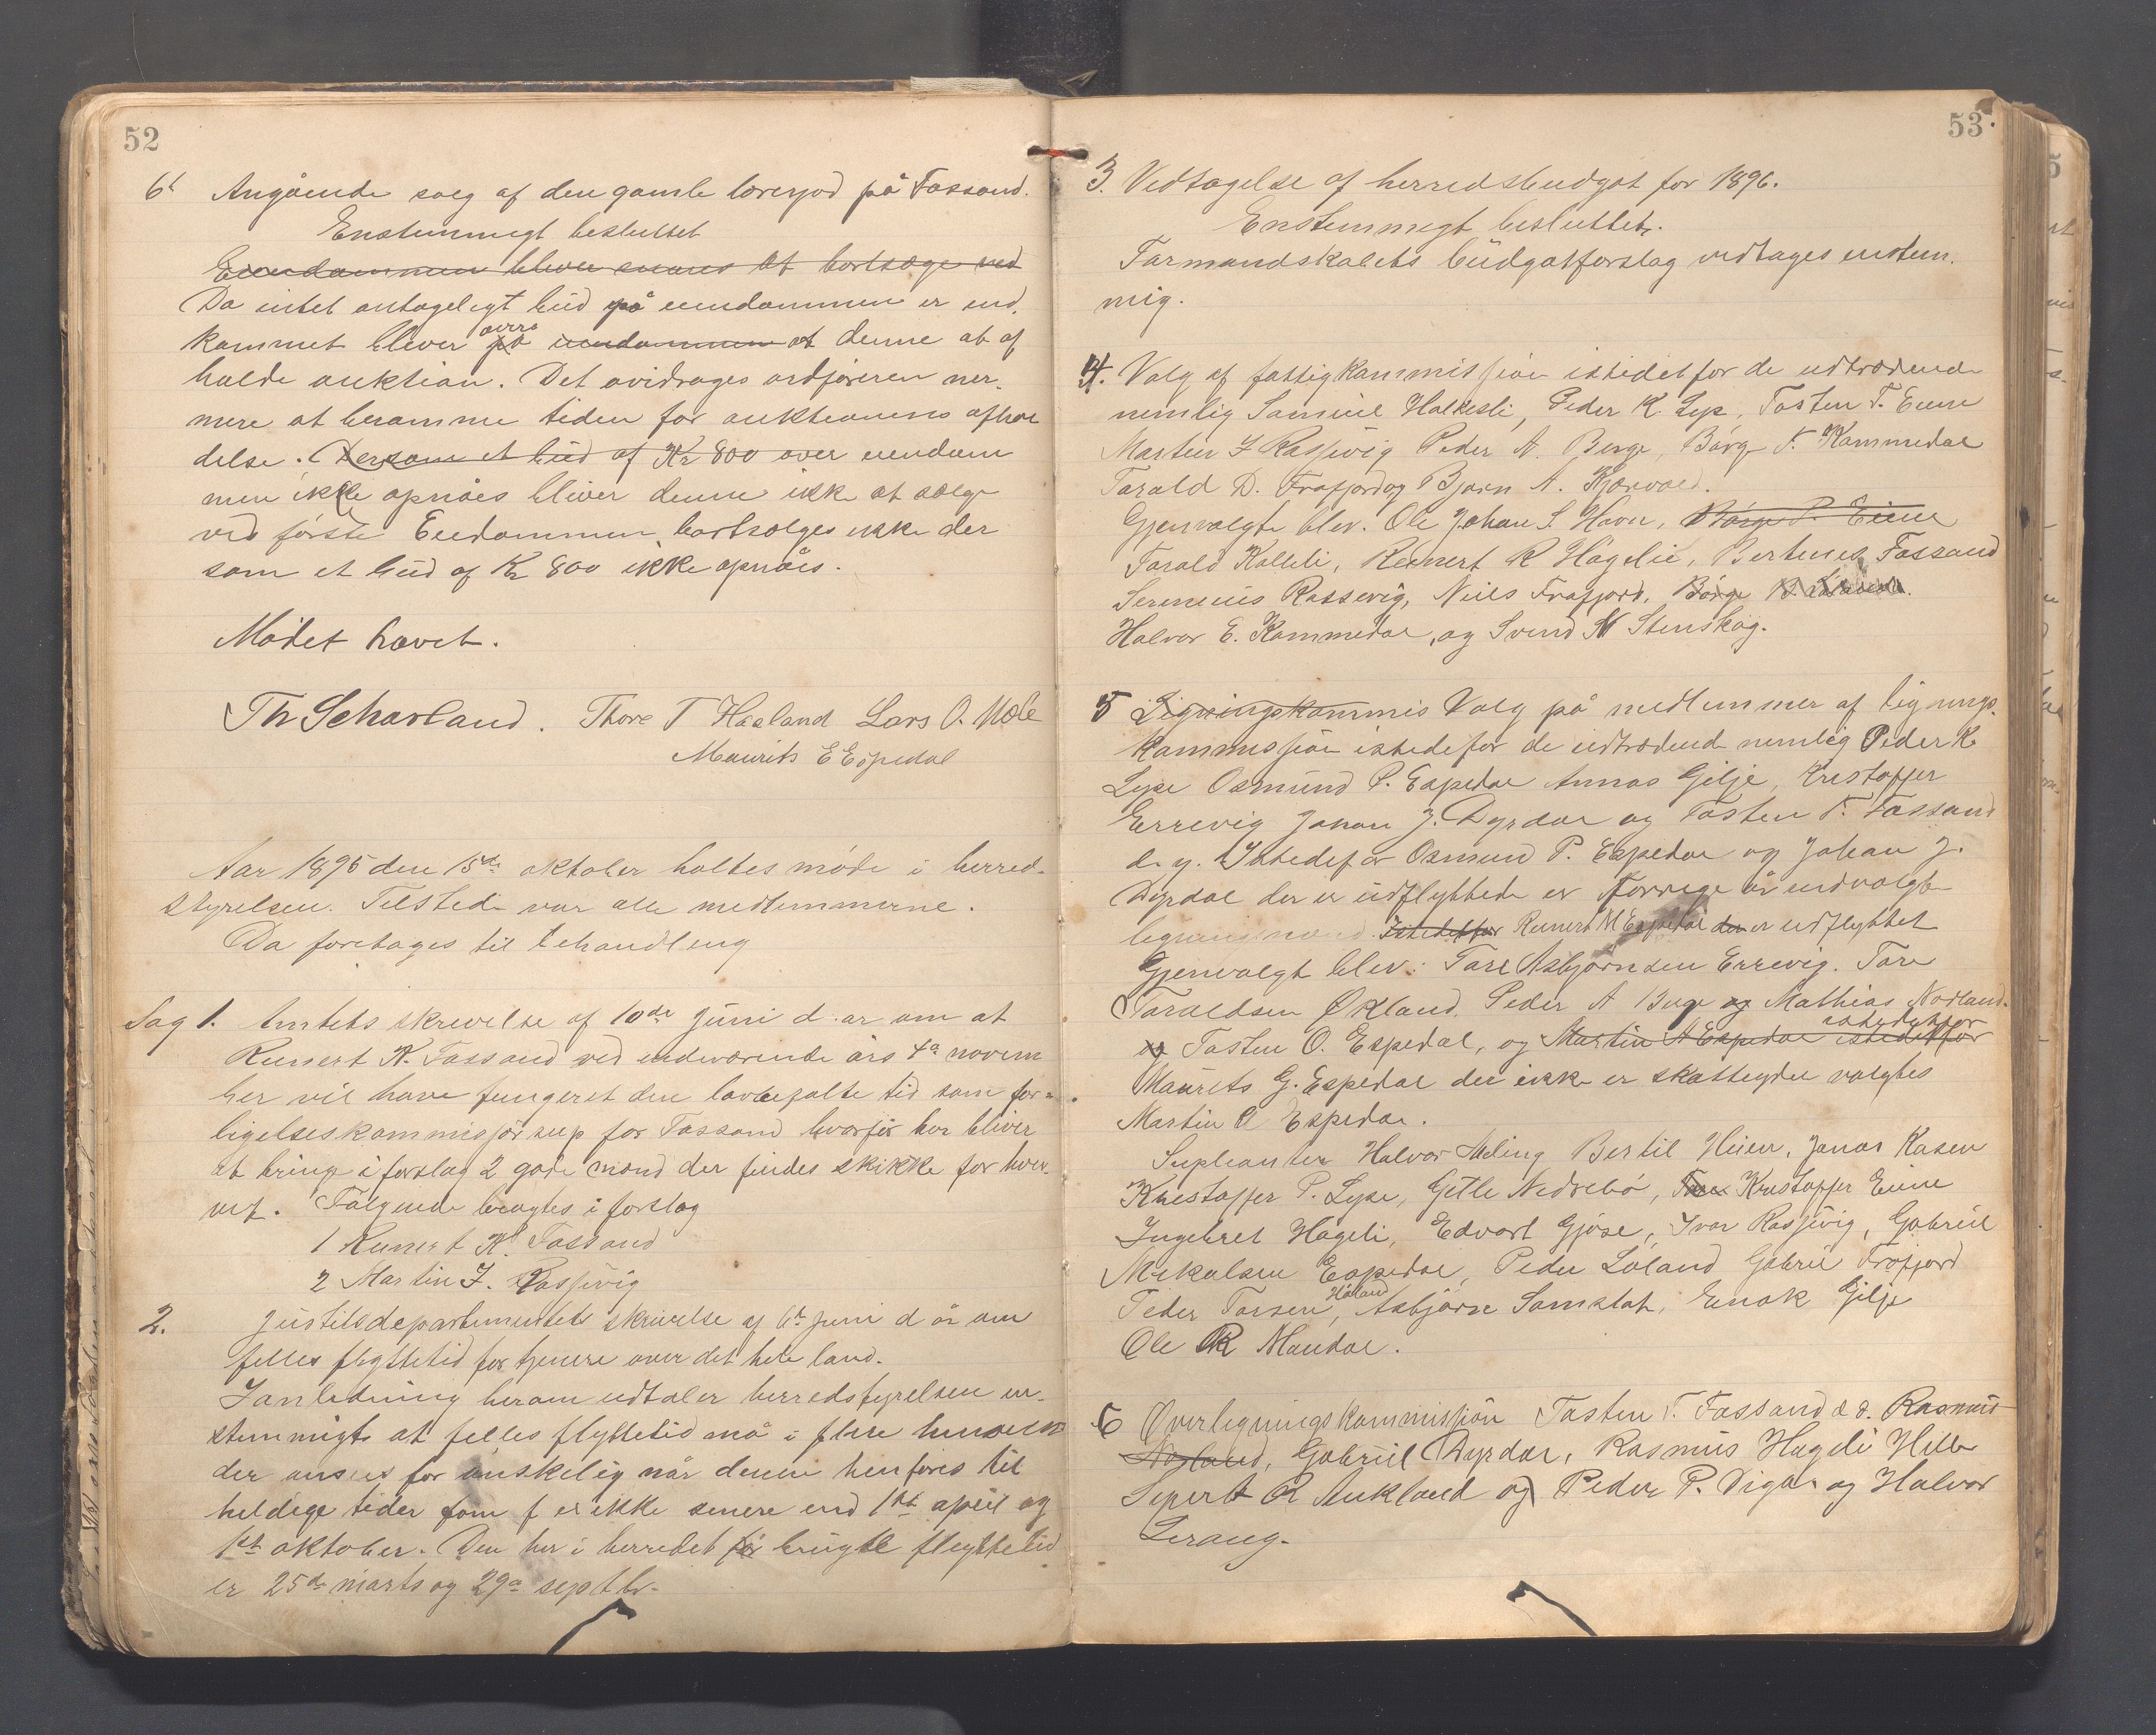 52
6t Angående salg af den gamle lærerjord på Fossand.
Enstemmigt besluttet
Eiendommen bliver snares at bortsælge ved
Da intet antageligt bud på eiendommen er ind,
kommet bliver på over eiendommen at denne at af
holde auktion. Det ovidrages ordføreren ner,
mere at beramme tiden for auktionens afhol
delse. Dersom et bud af Kr 800 over eiendom
men ikke opnåes bliver denne ikke at sælge
ved første Eiedommen bortsolges ikke der
som et bud af Kr 800 ikke opnåes.
Mødet hævet.
Th Scharland. Thore T Haaland Lars O. Mæle
Maurits E Espedal
Aar 1895 den 15de oktober holtes møde i herred-
styrelsen. Tilstede var alle medlemmerne.
Da foretages til behandling
Sag 1. Amtets skrivelse af 10de juni d. ar om at
Reinert K. Fossand ved indeværende års 4a novem
ber vil have fungeret den lovbefalte tid som for=
ligelseskommisjør sup for Fossand hvorfor her bliver
at bringe i forslag 2 gode mænd der findes skikke for hver-
vet. Følgende bragtes i forslag
1 Reinert K. Fossand
2 Martin I. Rasjevig
2. Justitsdepartementets skrivelse af 6t juni d år om
felles flyttetid for tjenere over det hele land.
I anledning herom udtaler herredstyrelsen en-
stemmigt at felles flyttetid må i flere henseen
der anses for ønskelig når denne henføres til
heldige tider som f er ikke senere end 1st april og
1st oktober. Den her i herredet før brugte flyttetid
er 25de marts og 29a septbr.
53.
3. Vedtagelse af herredsbudget for 1896.
Enstemmigt besluttet.
Formandskabets budgetforslag vedtages enstem.
mig.
4. Valg af fattigkommissjon istedetfor de udtrædende
nemlig Samuel Halkesli, Peder K. Lyse, Tosten T. Eiene
Martin I Rasjevig Peder A. Berge, Børge T. Kommedal
Tarald D. Frafjord og Bjørn A. Kjærvold.
Gjenvalgte blev. Ole Johan S. Havn, Børge P. Eiene
Tarald Kalleli, Reinert R Hågelie, Bertines Fossand
Serenius Rassevig, Niels Frafjord, Børge
Halvor E. Kommedal, og Svend N Stenskog.
5 Ligningskommis Valg på medlemmer af lignings.
kommissjon istedefor de udtrædende nemlig Peder K.
Lyse Osmund P. Espedal Annas Gilje, Kristoffer
Errevig Johan J. Dyrdal og Tosten T. Fossand
d.y. Istedefor Osmund P. Espedal og Johan J.
Dyrdal der er udflyttede er forrige år indvalgte
ligningsmænd. Istedetfor Reinert M Espedal den er udflyttet
Gjenvalgt blev: Tore Asbjørnsen Errevig. Tore
Taraldsen Økland. Peder A Berge og Mathias Norland.
og Tosten O. Espedal, og Martin A Espedal istedetfor istedetfor
Maurits G. Espedal der ikke er skatteyder valgtes
Martin O Espedal.
Supleanter Halvor Meling Bertil Heien, Jonas Kasen
Kristoffer P. Lyse, Getle Nedrebø, Tore Kristoffer Eiene
Ingebret Hageli, Edvart Gjøse, Ivar Rasjevig, Gabriel
Mikalsen Espedal, Peder Løland Gabriel Frafjord
Peder Torsen Håland, Asbjørn Samstat, Enok Gilje
Ole R Maudal.
6 Overligningskommissjon Tosten T. Fossand d.æ. Rasmus
Norland, Gabriel Dyrdal, Rasmus Hageli Helle
Sivert R Aukland og Peder P. Viga og Halvor
Lerang.